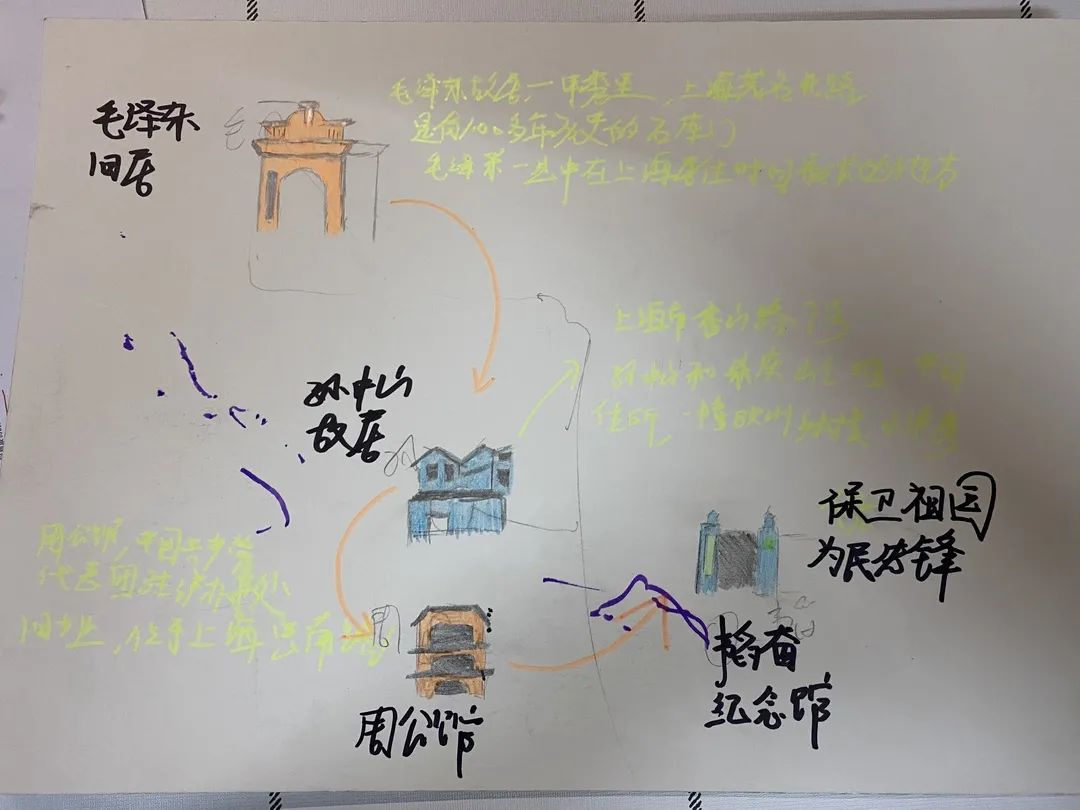 毛泽东
旧居
毛泽东故居,一甲秀里,上海茂名北路
是有100多年历史的石库门
毛泽东一生中在上海居住时间最长的地方
孙中山
故居
上海市香山路7号
孙中山和宋庆龄
住所,一幢欧洲
周公馆,中国共产党
代表团驻沪办事处
旧址,位于上海思南路
周公馆
保卫祖国
为民先锋
韬奋
纪念馆